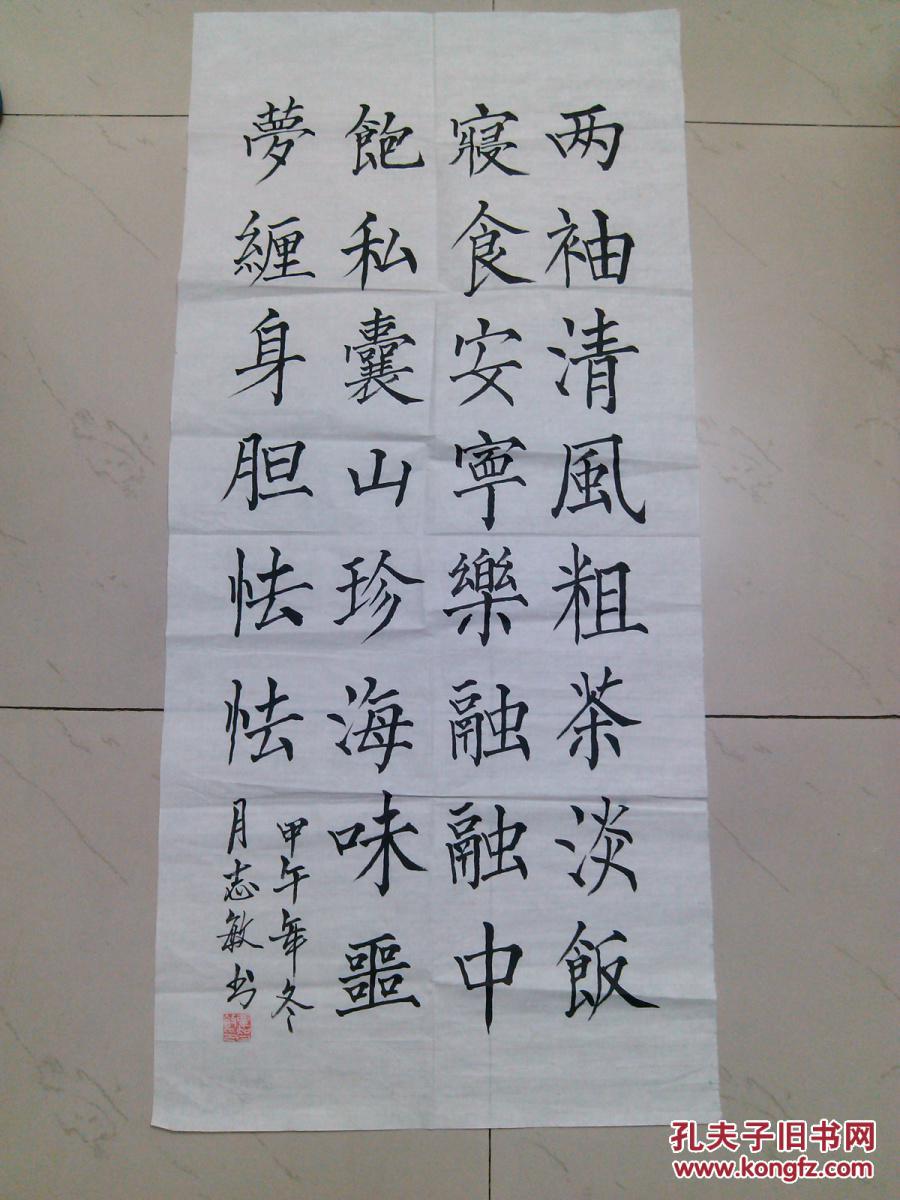 两袖清風粗茶淡飯
寢食安寧樂融融中
飽私囊山珍海味噩
夢纏身胆怯怯
甲午年冬
月志敏书
孔夫子旧书网
www.kongfz.com